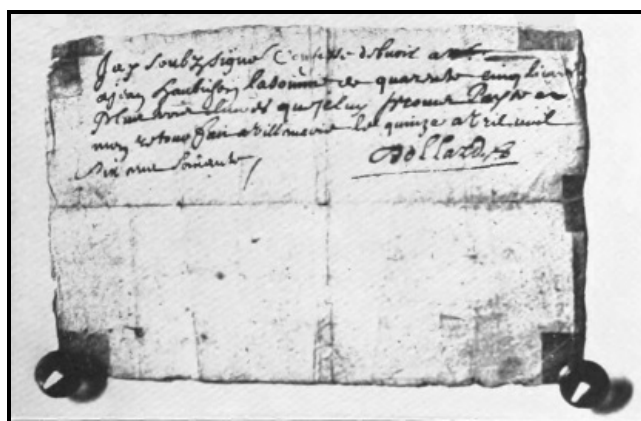 Jay Soubzsigne Confesse debvoir
a Jean haubichon la somme de quarente cinq livres
Plus trois livres que Je luy promes Payer a
mon retour fait a villemarie le quinze avril mil
Six soisante
Dollard